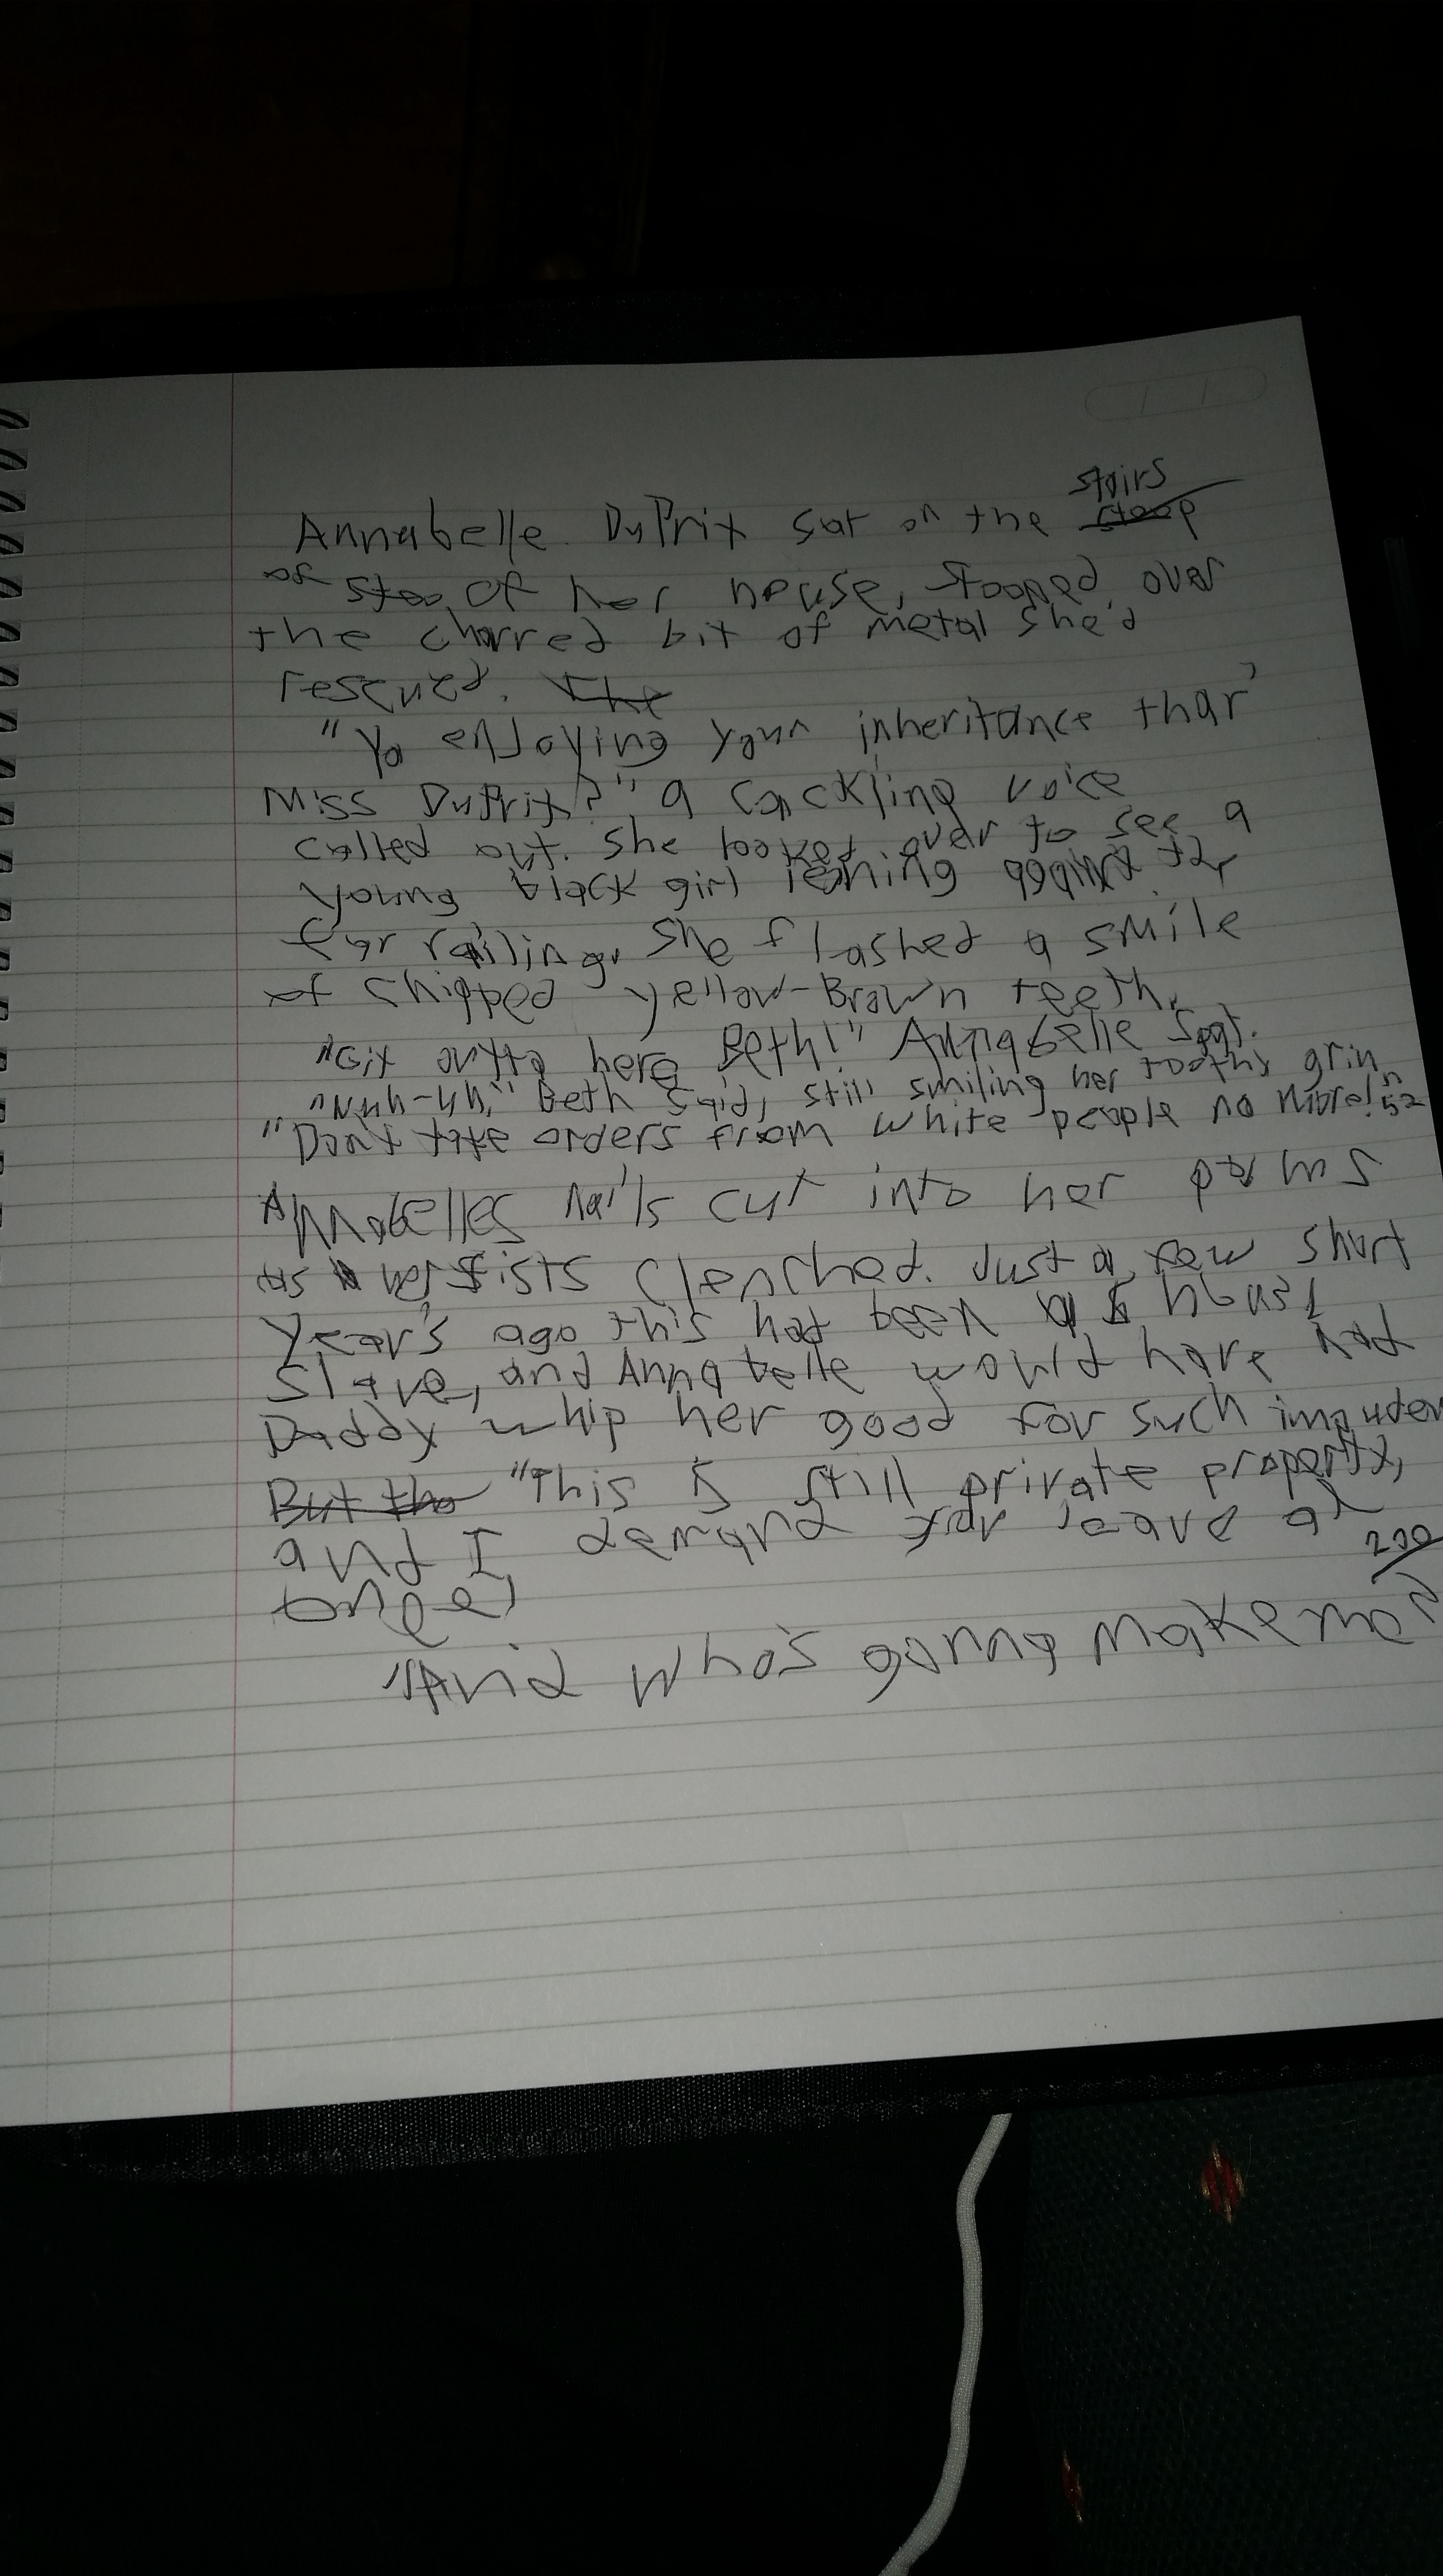 stairs
Annabelle DuPrix sat on the stoop
of stoo of her house, stooped over
the charred bit of metal she'd
rescued. The
"Ya enjoying your inheritance thar,
Miss DuPrix?" a cackling voice
called out. She looked over to see a
young black girl leaning against the
far railing. She flashed a smile
of chipped yellow-Brown teeth.
"Git outta here Beth!" Annabelle spat.
"Nuh-uh," Beth said, still smiling her toothy grin
"Don't take orders from white people no more!"
52
Annabelles nails cut into her palms
as her fists clenched. Just a few short
years ago this had been a house
slave, and Annabelle would have had
Daddy whip her good for such impuden
But the "This is still private property,
and I demand you leave at
once!
200
"And who's gonna make me?